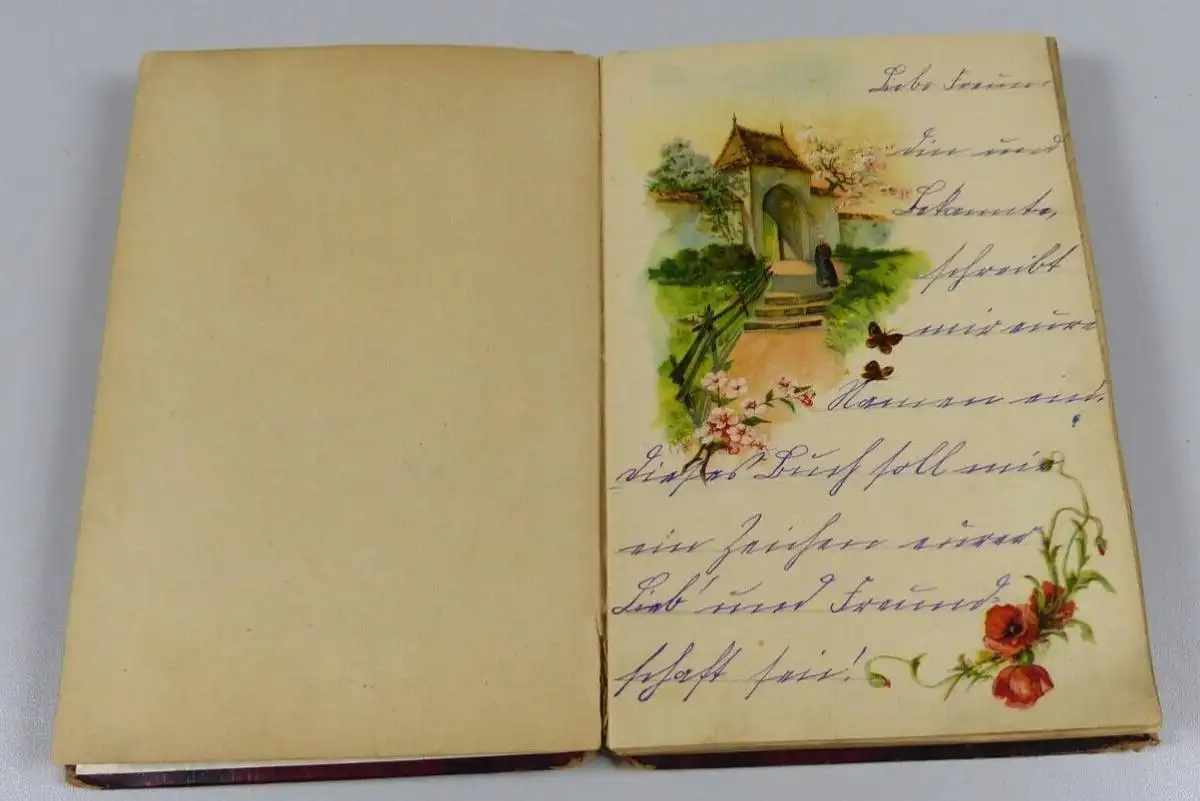 Liebe Freun-
din und
Bekannte,
schreibt
mir eure
Namen ein,
dieses Buch soll mir
ein Zeichen eurer
Lieb' und Freund-
schaft sein!